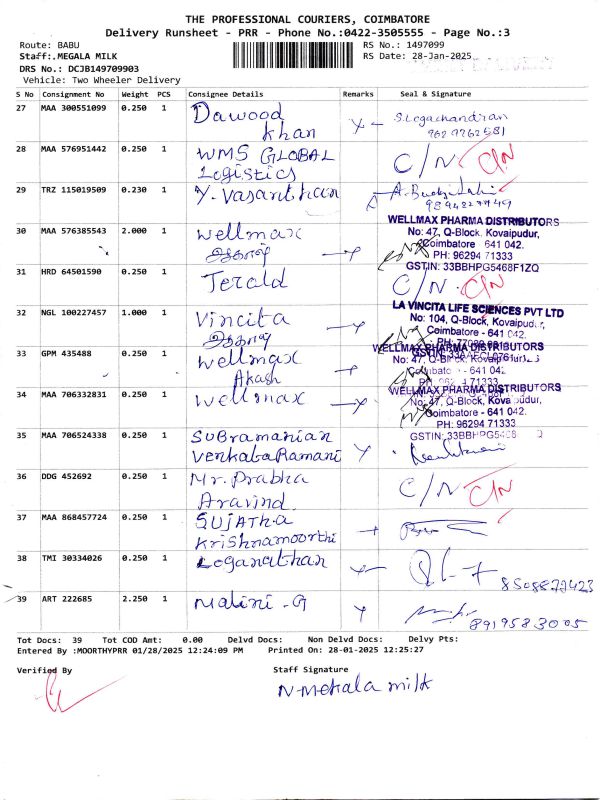 THE PROFESSIONAL COURIERS, COIMBATORE
Delivery Runsheet - PRR - Phone No.:0422-3505555 - Page No.:3
Route: BABU
RS No.: 1497099
Staff:.MEGALA MILK
RS Date: 28-Jan-2025
DRS No.: DCJB149709903
Vehicle: Two Wheeler Delivery
S No Consignment No Weight PCS Consignee Details Remarks Seal & Signature
27 MAA 300551099 0.250 1 Dawood
Khan
S.Logachandran
28 MAA 576951442 0.250 1 WMS GLOBAL
Logistics
C/N C/N
29 TRZ 115019509 0.230 1 Y. Vasanthaan
30 MAA 576385543 2.000 1 Wellmax
WELLMAX PHARMA DISTRIBUTORS
No: 47, Q-Block, Kovaipudur,
Coimbatore - 641 042.
PH: 96294 71333
GSTIN: 33BBHPG5468F1ZQ
31 HRD 64501590 0.250 1 Jerald
C/N C/N
32 NGL 100227457 1.000 1 Vincita
LA VINCITA LIFE SCIENCES PVT LTD
No: 104, Q-Block, Kovaipudur,
Coimbatore - 641 042.
33 GPM 435488 0.250 1 Wellmax
Akash
WELLMAX PHARMA DISTRIBUTORS
34 MAA 706332831 0.250 1 Wellmax
WELLMAX PHARMA DISTRIBUTORS
No: 47, Q-Block, Kovaipudur,
Coimbatore - 641 042.
PH: 96294 71333
GSTIN: 33BBHPG5468
35 MAA 706524338 0.250 1 Subramanian
Venkata Ramani
36 DDG 452692 0.250 1 Mr. Prabha
Aravind.
C/N C/N
37 MAA 868457724 0.250 1 SUJATHA
Krishnamoorthi
38 TMI 30334026 0.250 1 Loganathan
39 ART 222685 2.250 1 Malini - G
8919583005
Tot Docs: 39 Tot COD Amt: 0.00 Delvd Docs: Non Delvd Docs: Delvy Pts:
Entered By :MOORTHYPRR 01/28/2025 12:24:09 PM Printed On: 28-01-2025 12:25:27
Verified By
Staff Signature
N-Mekala milk